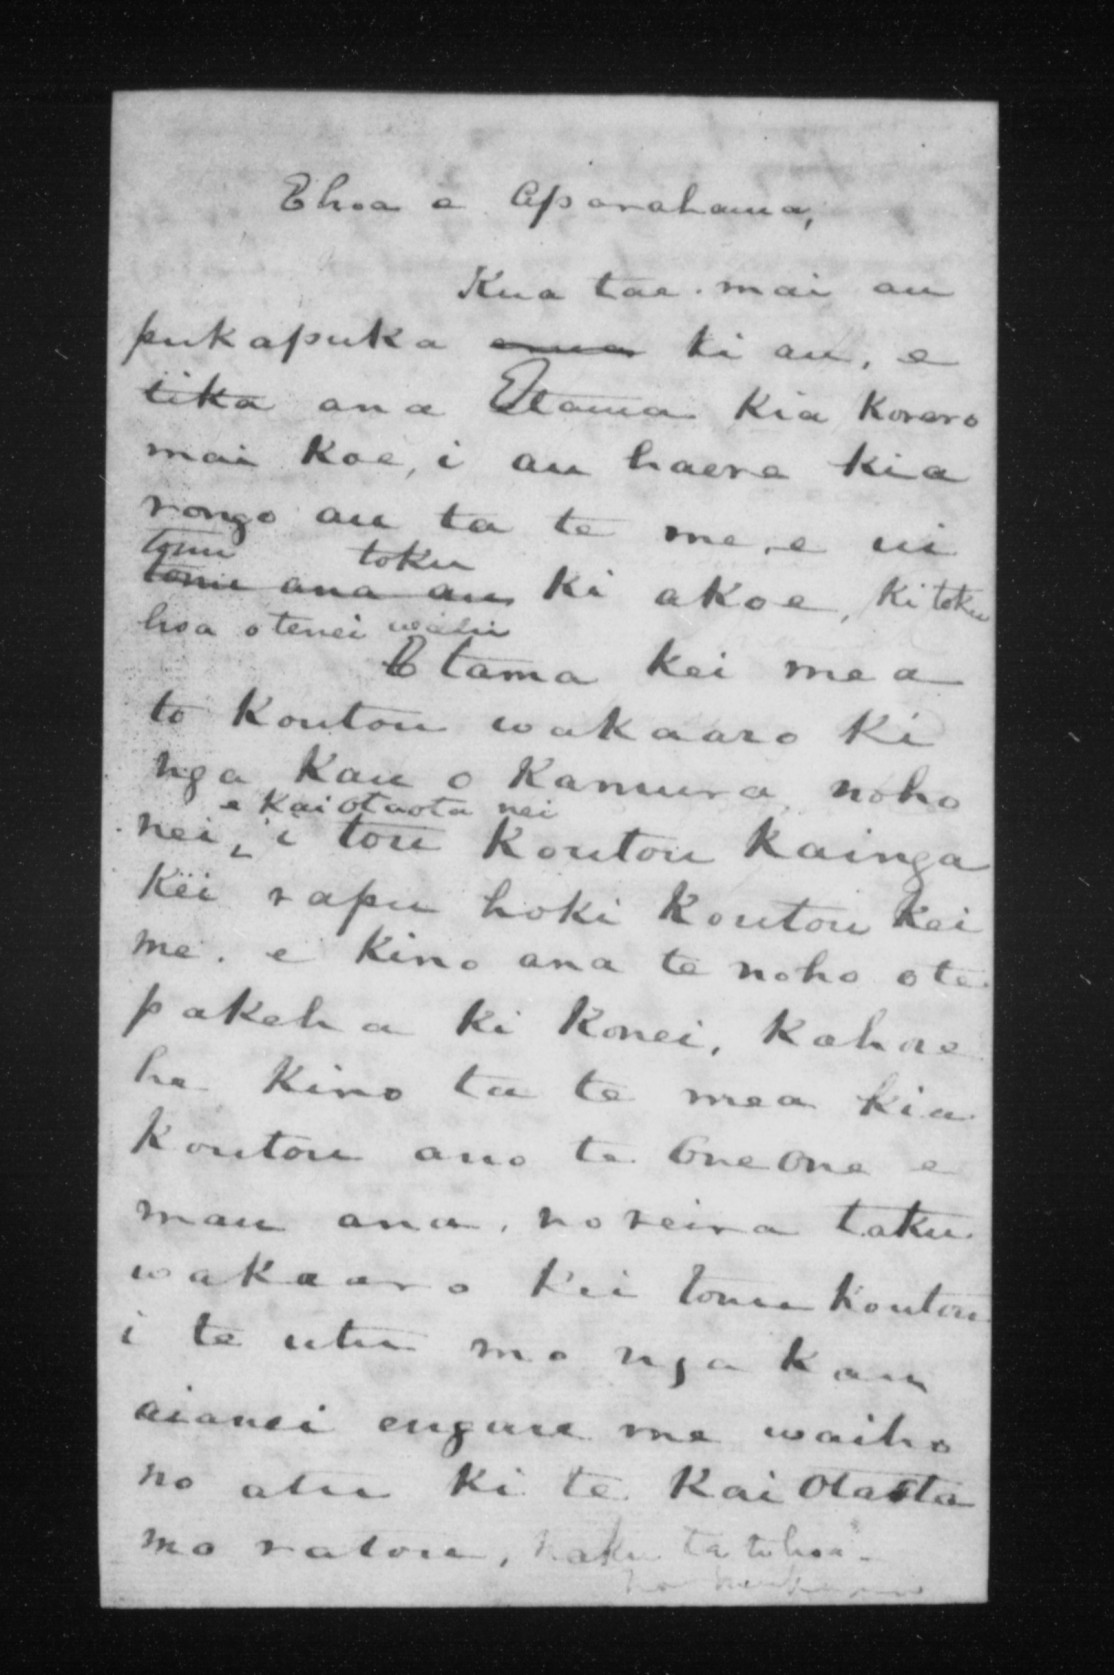 Ehoa e Aparahama,
Kua tae mai au
pukapuka ki au, e
tika ana Etama kia korero
mai koe, i au haere kia
rongo au ta te me, e ui
tonu toku
tonu ana au ki akoe, ki toku
hoa otenei wahi
Etama kei mea
to koutou wakaaro ki
nga kau o Kamura noho
e kai otaota nei
nei, i tou koutou kainga
kei rapu hoki koutou kei
me. e kino ana te noho ote
pakeha ki konei, kahore
he kino ta te mea kia
koutou ano te one one e
mau ana, no reira taku
wakaaro kei tonu koutou
i te utu mo nga kau
aianei engari me waiho
no atu ki te kai Otaota
mo ratou, naku ta tohoa